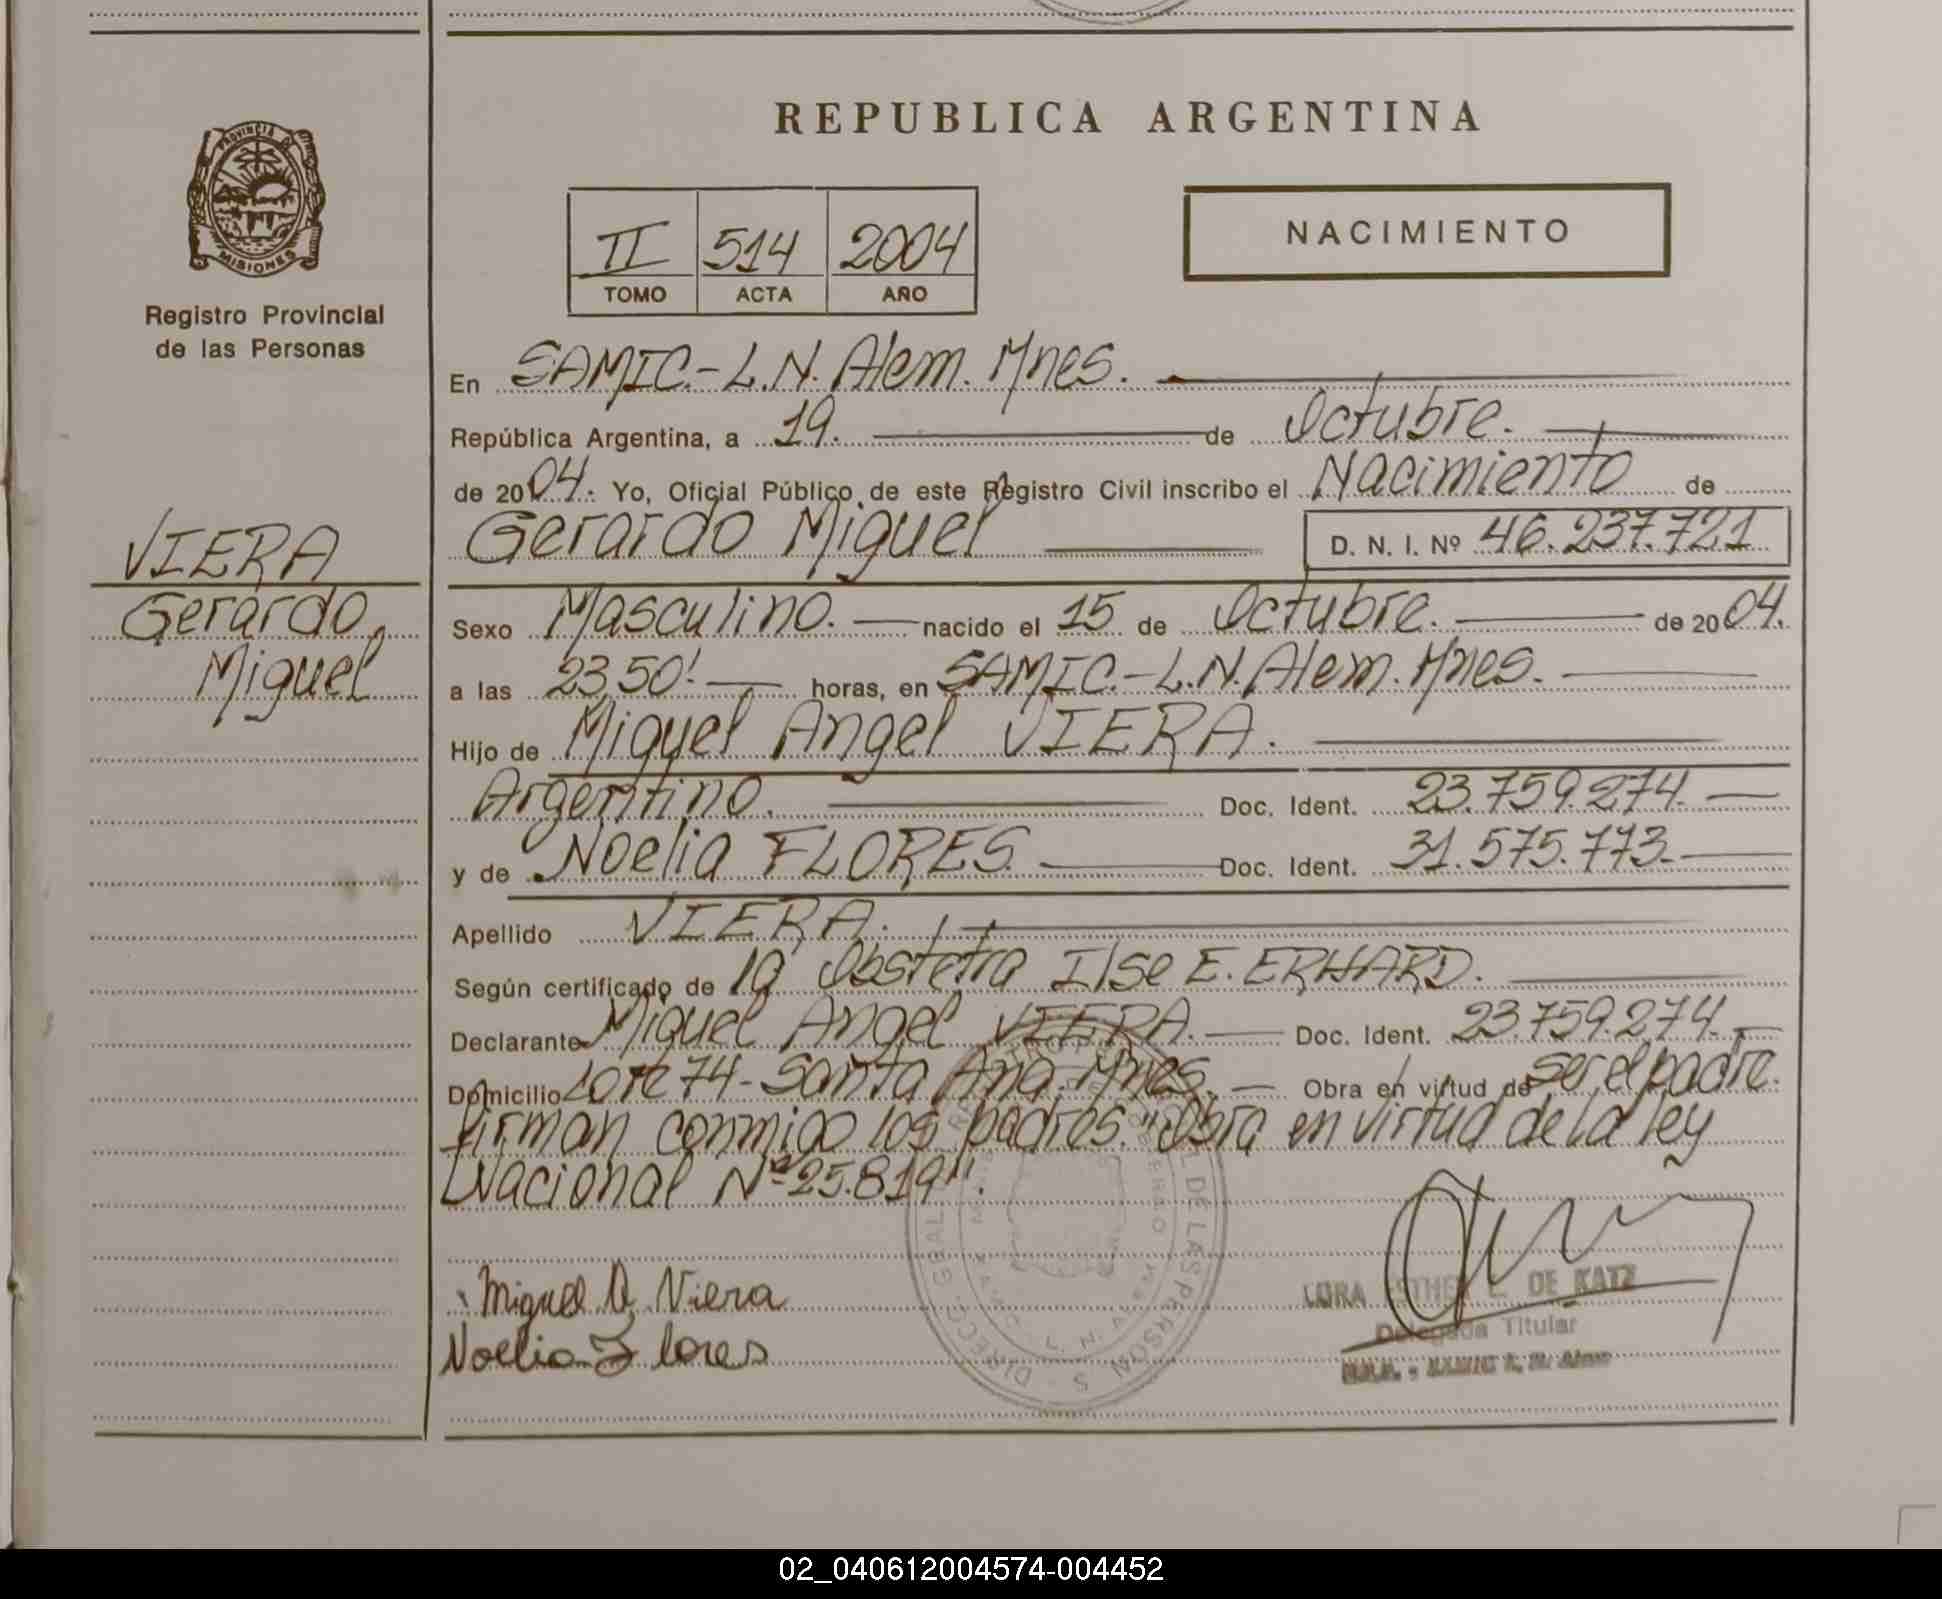 REPUBLICA ARGENTINA
PROVINCIA DE
MISIONES
Registro Provincial
de las Personas
VIERA
Gerardo
Miguel
II 514 2004
TOMO ACTA AÑO
NACIMIENTO
En SAMIC.-L.N. Alem. Mnes.
República Argentina, a 19. de Octubre.
de 2004. Yo, Oficial Público de este Registro Civil inscribo el Nacimiento de
Gerardo Miguel D. N. I. Nº 46.237.721
Sexo Masculino. nacido el 15 de Octubre. de 2004.
a las 23,50'. horas, en SAMIC.-L.N. Alem. Mnes.
Hijo de Miguel Angel VIERA.
Argentino. Doc. Ident. 23.759.274.
y de Noelia FLORES. Doc. Ident. 31.575.773.
Apellido VIERA.
Según certificado de la Obstetra Ilse E. ERHARD.
Declarante Miguel Angel VIERA. Doc. Ident. 23.759.274.
Domicilio Lote 74- Santa Ana. Mnes. Obra en virtud de ser el padre.
firman conmigo los padres. "Obra en virtud de la ley
Nacional Nº 25.819".
Miguel A Viera
Noelia Flores
DE KATZ
Delegada Titular
02_040612004574-004452